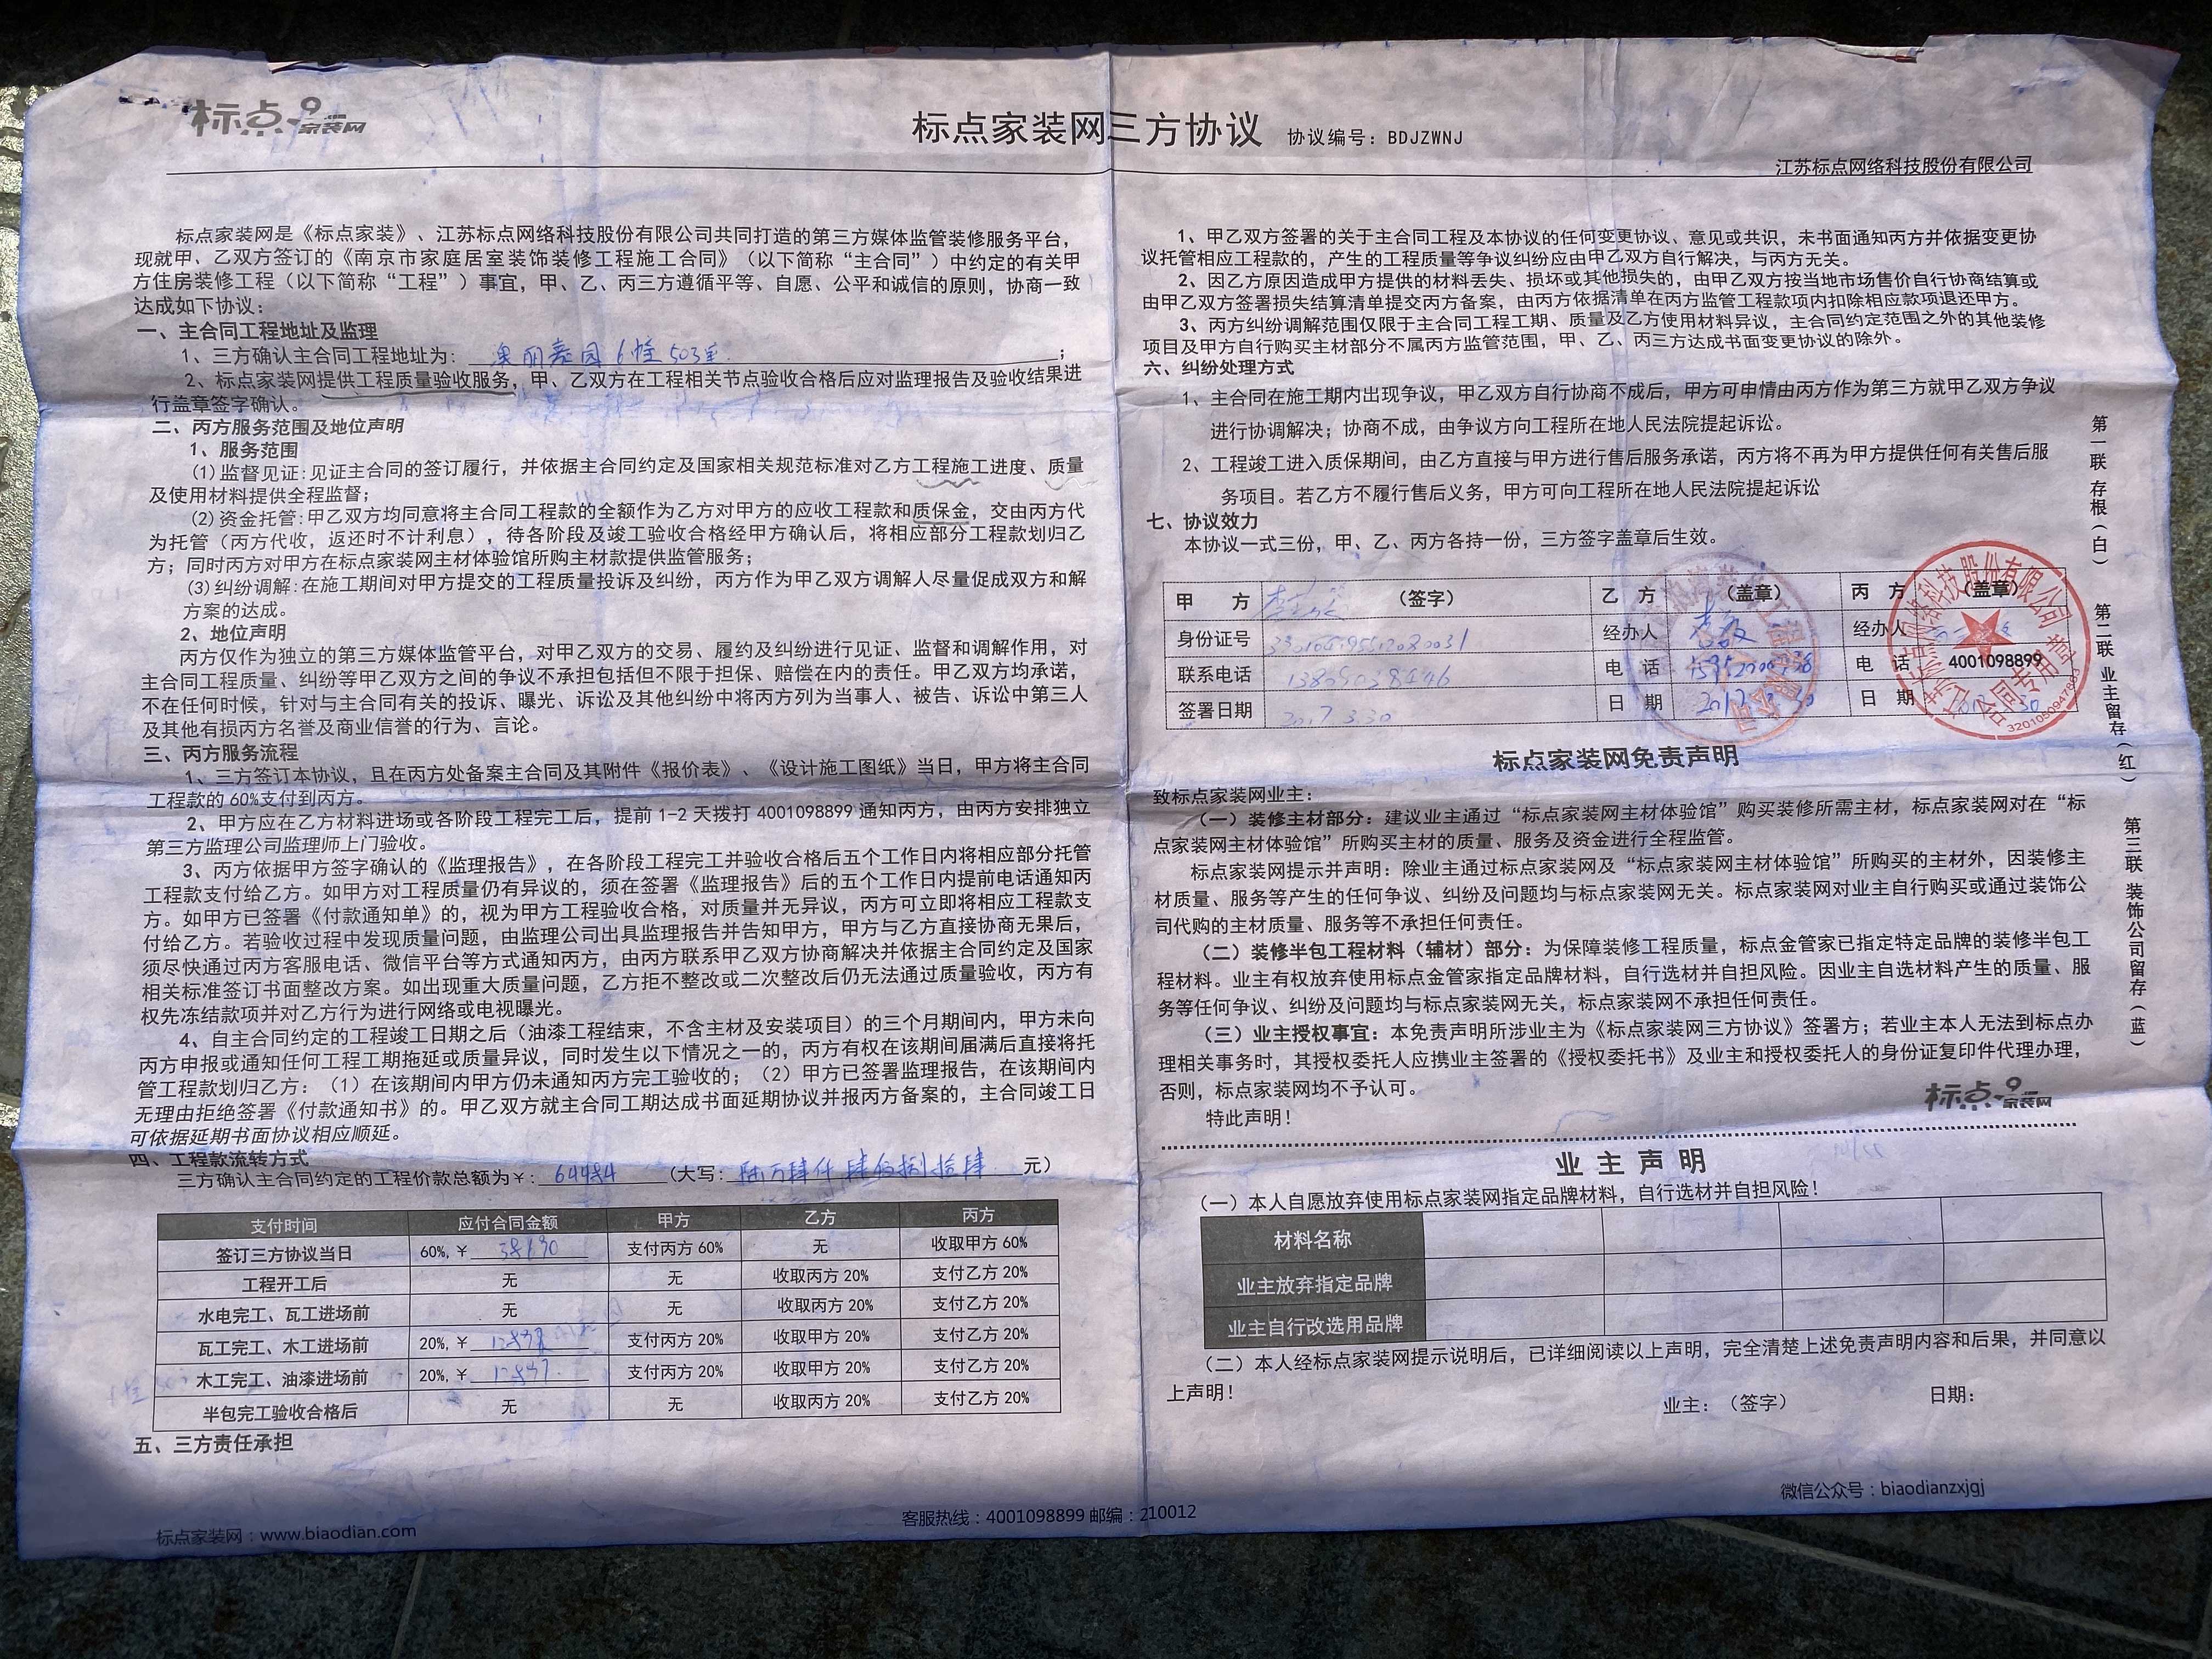 标点家装网
标点家装网三方协议 协议编号：BDJZWNJ
江苏标点网络科技股份有限公司
标点家装网是《标点家装》、江苏标点网络科技股份有限公司共同打造的第三方媒体监管装修服务平台，
现就甲、乙双方签订的《南京市家庭居室装饰装修工程施工合同》（以下简称“主合同”）中约定的有关甲
方住房装修工程（以下简称“工程”）事宜，甲、乙、丙三方遵循平等、自愿、公平和诚信的原则，协商一致
达成如下协议：
一、主合同工程地址及监理
1、三方确认主合同工程地址为：奥丽嘉园6幢503室；
2、标点家装网提供工程质量验收服务，甲、乙双方在工程相关节点验收合格后应对监理报告及验收结果进
行盖章签字确认。
二、丙方服务范围及地位声明
1、服务范围
(1)监督见证：见证主合同的签订履行，并依据主合同约定及国家相关规范标准对乙方工程施工进度、质量
及使用材料提供全程监督；
(2)资金托管：甲乙双方均同意将主合同工程款的全额作为乙方对甲方的应收工程款和质保金，交由丙方代
为托管（丙方代收，返还时不计利息），待各阶段及竣工验收合格经甲方确认后，将相应部分工程款划归乙
方；同时丙方对甲方在标点家装网主材体验馆所购主材款提供监管服务；
(3)纠纷调解：在施工期间对甲方提交的工程质量投诉及纠纷，丙方作为甲乙双方调解人尽量促成双方和解
方案的达成。
2、地位声明
丙方仅作为独立的第三方媒体监管平台，对甲乙双方的交易、履约及纠纷进行见证、监督和调解作用，对
主合同工程质量、纠纷等甲乙双方之间的争议不承担包括但不限于担保、赔偿在内的责任。甲乙双方均承诺，
不在任何时候，针对与主合同有关的投诉、曝光、诉讼及其他纠纷中将丙方列为当事人、被告、诉讼中第三人
及其他有损丙方名誉及商业信誉的行为、言论。
三、丙方服务流程
1、三方签订本协议，且在丙方处备案主合同及其附件《报价表》、《设计施工图纸》当日，甲方将主合同
工程款的60%支付到丙方。
2、甲方应在乙方材料进场或各阶段工程完工后，提前1-2天拨打4001098899通知丙方，由丙方安排独立
第三方监理公司监理师上门验收。
3、丙方依据甲方签字确认的《监理报告》，在各阶段工程完工并验收合格后五个工作日内将相应部分托管
工程款支付给乙方。如甲方对工程质量仍有异议的，须在签署《监理报告》后的五个工作日内提前电话通知丙
方。如甲方已签署《付款通知单》的，视为甲方工程验收合格，对质量并无异议，丙方可立即将相应工程款支
付给乙方。若验收过程中发现质量问题，由监理公司出具监理报告并告知甲方，甲方与乙方直接协商无果后，
须尽快通过丙方客服电话、微信平台等方式通知丙方，由丙方联系甲乙双方协商解决并依据主合同约定及国家
相关标准签订书面整改方案。如出现重大质量问题，乙方拒不整改或二次整改后仍无法通过质量验收，丙方有
权先冻结款项并对乙方行为进行网络或电视曝光。
4、自主合同约定的工程竣工日期之后（油漆工程结束，不含主材及安装项目）的三个月期间内，甲方未向
丙方申报或通知任何工程工期拖延或质量异议，同时发生以下情况之一的，丙方有权在该期间届满后直接将托
管工程款划归乙方：（1）在该期间内甲方仍未通知丙方完工验收的；（2）甲方已签署监理报告，在该期间内
无理由拒绝签署《付款通知书》的。甲乙双方就主合同工期达成书面延期协议并报丙方备案的，主合同竣工日
可依据延期书面协议相应顺延。
四、工程款流转方式
三方确认主合同约定的工程价款总额为￥：64484（大写：陆万肆仟肆佰捌拾肆元）
支付时间 应付合同金额 甲方 乙方 丙方
签订三方协议当日 60%,￥ 支付丙方60% 无 收取甲方60%
工程开工后 无 无 收取丙方20% 支付乙方20%
水电完工、瓦工进场前 无 无 收取丙方20% 支付乙方20%
瓦工完工、木工进场前 20%,￥ 支付丙方20% 收取甲方20% 支付乙方20%
木工完工、油漆进场前 20%,￥12897 支付丙方20% 收取甲方20% 支付乙方20%
半包完工验收合格后 无 无 收取丙方20% 支付乙方20%
五、三方责任承担
1、甲乙双方签署的关于主合同工程及本协议的任何变更协议、意见或共识，未书面通知丙方并依据变更协
议托管相应工程款的，产生的工程质量等争议纠纷应由甲乙双方自行解决，与丙方无关。
2、因乙方原因造成甲方提供的材料丢失、损坏或其他损失的，由甲乙双方按当地市场售价自行协商结算或
由甲乙双方签署损失结算清单提交丙方备案，由丙方依据清单在丙方监管工程款项内扣除相应款项退还甲方。
3、丙方纠纷调解范围仅限于主合同工程工期、质量及乙方使用材料异议，主合同约定范围之外的其他装修
项目及甲方自行购买主材部分不属丙方监管范围，甲、乙、丙三方达成书面变更协议的除外。
六、纠纷处理方式
1、主合同在施工期内出现争议，甲乙双方自行协商不成后，甲方可申情由丙方作为第三方就甲乙双方争议
进行协调解决；协商不成，由争议方向工程所在地人民法院提起诉讼。
2、工程竣工进入质保期间，由乙方直接与甲方进行售后服务承诺，丙方将不再为甲方提供任何有关售后服
务项目。若乙方不履行售后义务，甲方可向工程所在地人民法院提起诉讼
七、协议效力
本协议一式三份，甲、乙、丙方各持一份，三方签字盖章后生效。
甲 方 （签字） 乙 方 （盖章） 丙 方 （盖章）
身份证号 经办人 经办人
联系电话 电 话 电 话 4001098899
签署日期 2017.3.30 日 期 2017 3 30 日 期
合同专用章
标点家装网免责声明
致标点家装网业主：
（一）装修主材部分：建议业主通过“标点家装网主材体验馆”购买装修所需主材，标点家装网对在“标
点家装网主材体验馆”所购买主材的质量、服务及资金进行全程监管。
标点家装网提示并声明：除业主通过标点家装网及“标点家装网主材体验馆”所购买的主材外，因装修主
材质量、服务等产生的任何争议、纠纷及问题均与标点家装网无关。标点家装网对业主自行购买或通过装饰公
司代购的主材质量、服务等不承担任何责任。
（二）装修半包工程材料（辅材）部分：为保障装修工程质量，标点金管家已指定特定品牌的装修半包工
程材料。业主有权放弃使用标点金管家指定品牌材料，自行选材并自担风险。因业主自选材料产生的质量、服
务等任何争议、纠纷及问题均与标点家装网无关，标点家装网不承担任何责任。
（三）业主授权事宜：本免责声明所涉业主为《标点家装网三方协议》签署方；若业主本人无法到标点办
理相关事务时，其授权委托人应携业主签署的《授权委托书》及业主和授权委托人的身份证复印件代理办理，
否则，标点家装网均不予认可。
特此声明！
标点家装网
业主声明
（一）本人自愿放弃使用标点家装网指定品牌材料，自行选材并自担风险！
材料名称
业主放弃指定品牌
业主自行改选用品牌
（二）本人经标点家装网提示说明后，已详细阅读以上声明，完全清楚上述免责声明内容和后果，并同意以
上声明！
业主：（签字） 日期：
第一联 存根（白） 第二联 业主留存（红） 第三联 装饰公司留存（蓝）
标点家装网：www.biaodian.com
客服热线：4001098899 邮编：210012
微信公众号：biaodianzxjgj